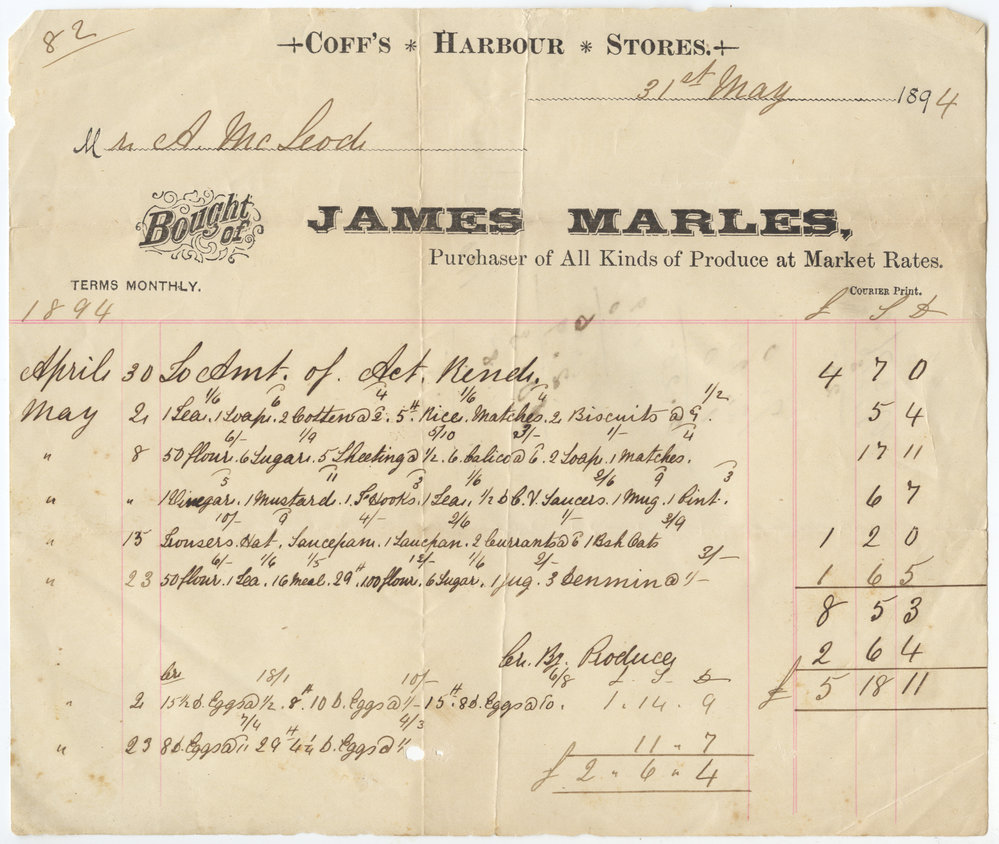 82
COFF'S * HARBOUR * STORES.
31st May 1894
Mr. A. McLeod
Bought of JAMES MARLES,
Purchaser of All Kinds of Produce at Market Rates.
TERMS MONTHLY.
COURIER Print.
1894 £ S D
April 30 To Amt. of Act. Rend. 4 7 0
1/6 6 4 1/6 4 1/2
May 2 1 Tea. 1 Soap. 2 Cotton @ 2. 5 Rice. Matches. 2 Biscuits @ 7. 5 4
6/- 1/9 5/10 3/- 1/- 4
" 8 50 flour. 6 Sugar. 5 Sheeting @ 1/2. 6 Calico @ 6. 2 Soap. 1 Matches. 17 11
5 11 3 1/6 2/6 9 3
" " 1 Vinegar. 1 Mustard. 1 F Hooks. 1 Tea. 1/2 d C. & Saucers. 1 Mug. 1 Pint. 6 7
10/- 9 4/- 2/6 1/- 2/9
" 15 Trousers. Hat. Saucepan. 1 Saucepan. 2 Currants @ 6 1 Bsh Oats 1 2 0
6/- 1/6 1/5 12/- 1/6 2/- 3/-
" 23 50 flour. 1 Tea. 16 Meal. 29 100 flour. 6 Sugar. 1 Jug. 3 Denmin @ 1/- 1 6 5
8 5 3
Cr. By. Produce 2 6 4
Cr 18/1 10/- 6/8 £ S D £ 5 18 11
" 2 15 1/2 d. Eggs @ 1/2. 8 10 d. Eggs @ 1/- 15 8 d. Eggs @ 10. 1 . 14 . 9
7/4 4/3
" 23 8 d. Eggs @ 11 29 4 1/4 d. Eggs @ 1/- 11 " 7
£ 2 " 6 " 4